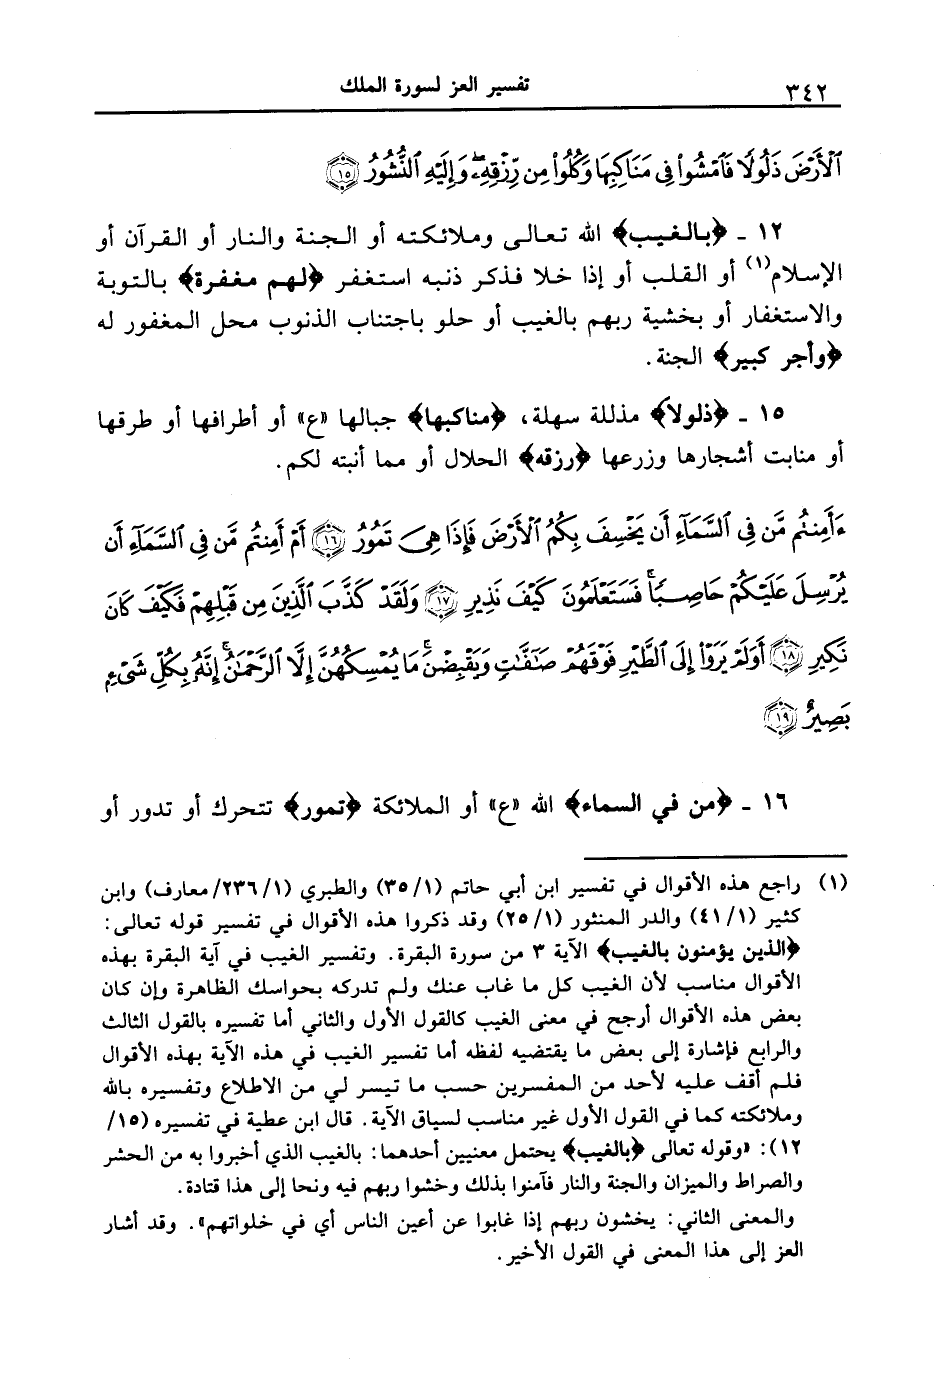 ٣٤٢ تفسير العز لسورة الملك
ٱلْأَرْضَ ذَلُولًا فَٱمْشُوا۟ فِى مَنَاكِبِهَا وَكُلُوا۟ مِن رِّزْقِهِۦ ۖ وَإِلَيْهِ ٱلنُّشُورُ ﴿١٥﴾
١٢ ـ ﴿بالغيب﴾ الله تعالى وملائكته أو الجنة والنار أو القرآن أو
الإسلام(١) أو القلب أو إذا خلا فذكر ذنبه استغفر ﴿لهم مغفرة﴾ بالتوبة
والاستغفار أو بخشية ربهم بالغيب أو حلو باجتناب الذنوب محل المغفور له
﴿وأجر كبير﴾ الجنة.
١٥ ـ ﴿ذلولا﴾ مذللة سهلة، ﴿مناكبها﴾ جبالها «ع» أو أطرافها أو طرقها
أو منابت أشجارها وزرعها ﴿رزقه﴾ الحلال أو مما أنبته لكم.
ءَأَمِنتُم مَّن فِى ٱلسَّمَآءِ أَن يَخْسِفَ بِكُمُ ٱلْأَرْضَ فَإِذَا هِىَ تَمُورُ ﴿١٦﴾ أَمْ أَمِنتُم مَّن فِى ٱلسَّمَآءِ أَن
يُرْسِلَ عَلَيْكُمْ حَاصِبًا ۖ فَسَتَعْلَمُونَ كَيْفَ نَذِيرِ ﴿١٧﴾ وَلَقَدْ كَذَّبَ ٱلَّذِينَ مِن قَبْلِهِمْ فَكَيْفَ كَانَ
نَكِيرِ ﴿١٨﴾ أَوَلَمْ يَرَوْا۟ إِلَى ٱلطَّيْرِ فَوْقَهُمْ صَٰٓفَّٰتٍ وَيَقْبِضْنَ ۚ مَا يُمْسِكُهُنَّ إِلَّا ٱلرَّحْمَٰنُ ۚ إِنَّهُۥ بِكُلِّ شَىْءٍۭ
بَصِيرٌ ﴿١٩﴾
١٦ ـ ﴿من في السماء﴾ الله «ع» أو الملائكة ﴿تمور﴾ تتحرك أو تدور أو
(١) راجع هذه الأقوال في تفسير ابن أبي حاتم (٣٥/١) والطبري (٢٣٦/١/معارف) وابن
كثير (٤١/١) والدر المنثور (٢٥/١) وقد ذكروا هذه الأقوال في تفسير قوله تعالى:
﴿الذين يؤمنون بالغيب﴾ الآية ٣ من سورة البقرة. وتفسير الغيب في آية البقرة بهذه
الأقوال مناسب لأن الغيب كل ما غاب عنك ولم تدركه بحواسك الظاهرة وإن كان
بعض هذه الأقوال أرجح في معنى الغيب كالقول الأول والثاني أما تفسيره بالقول الثالث
والرابع فإشارة إلى بعض ما يقتضيه لفظه أما تفسير الغيب في هذه الآية بهذه الأقوال
فلم أقف عليه لأحد من المفسرين حسب ما تيسر لي من الاطلاع وتفسيره بالله
وملائكته كما في القول الأول غير مناسب لسياق الآية. قال ابن عطية في تفسيره (١٥/
١٢): «وقوله تعالى ﴿بالغيب﴾ يحتمل معنيين أحدهما: بالغيب الذي أخبروا به من الحشر
والصراط والميزان والجنة والنار فآمنوا بذلك وخشوا ربهم فيه ونحا إلى هذا قتادة.
والمعنى الثاني: يخشون ربهم إذا غابوا عن أعين الناس أي في خلواتهم». وقد أشار
العز إلى هذا المعنى في القول الأخير.